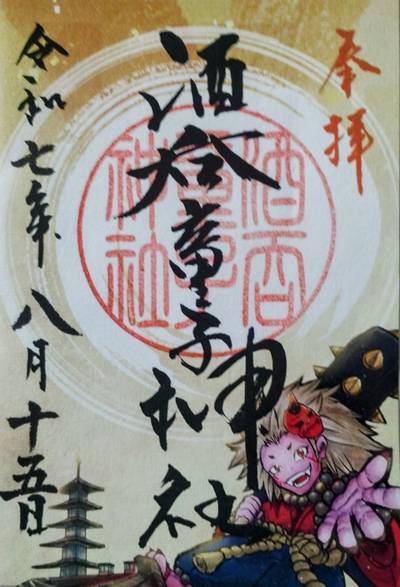 奉拝
酒呑童子神社
酒呑童子神社
令和七年八月十五日